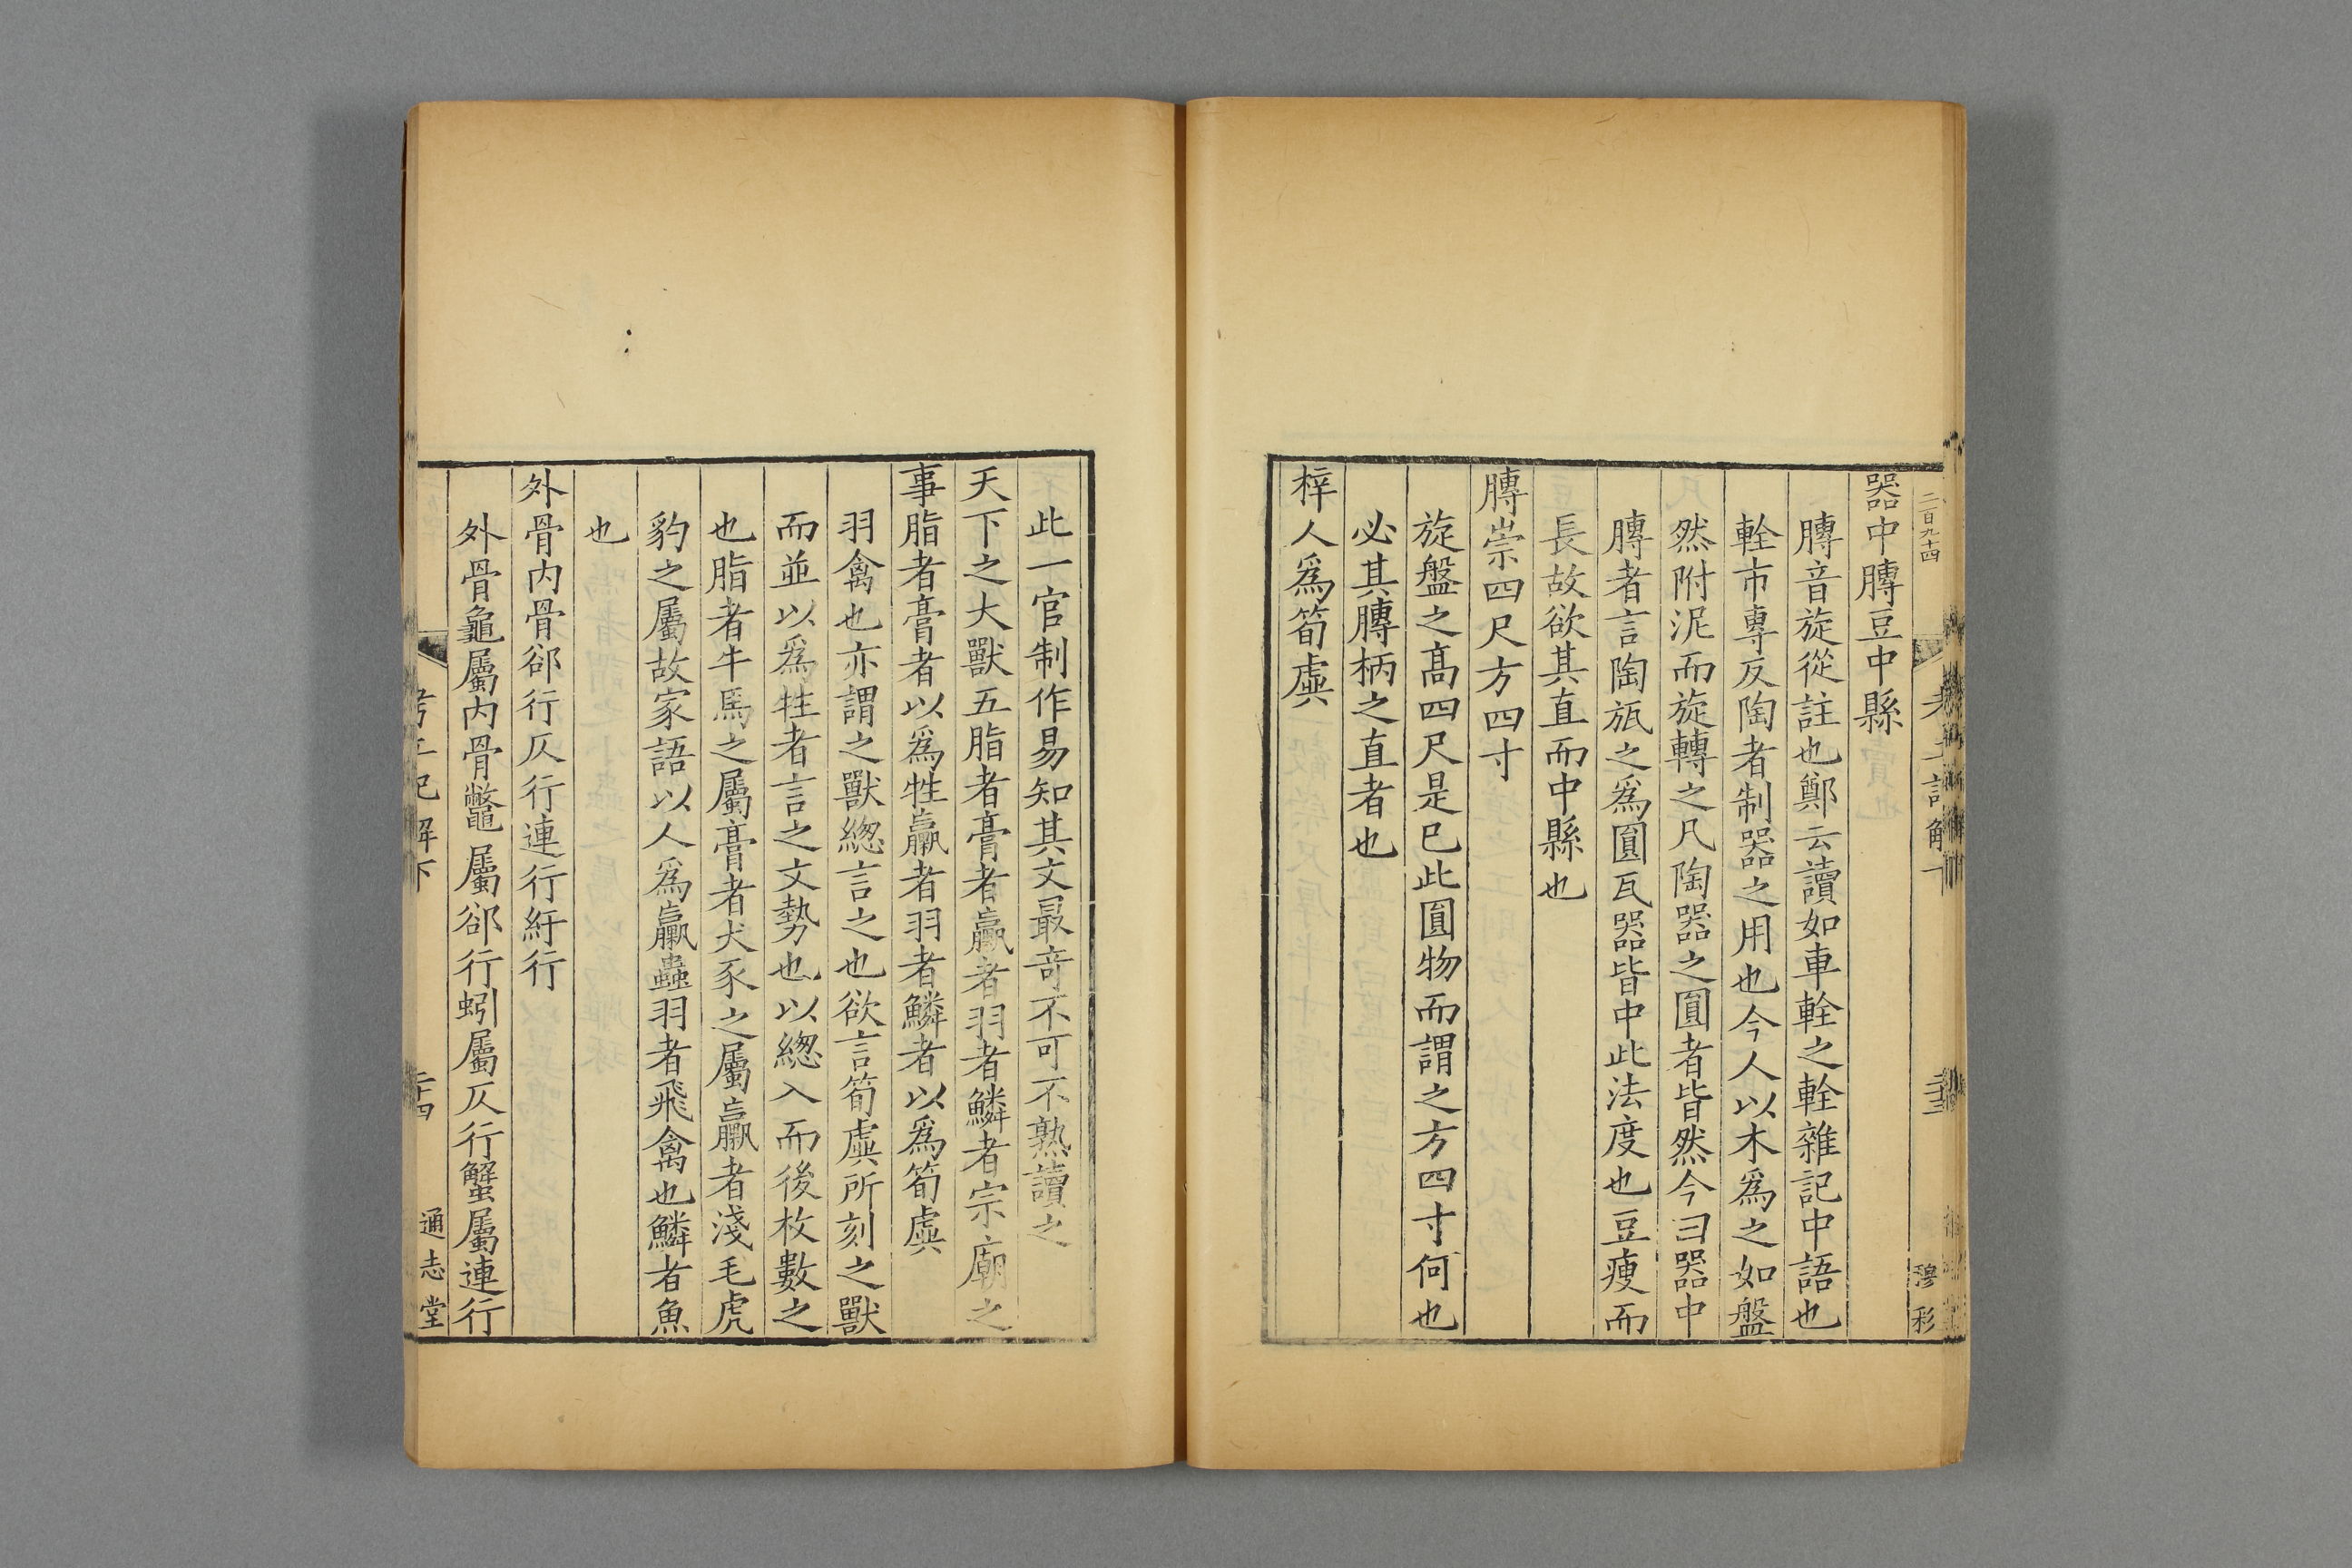 二百九十四
器中膞豆中縣
膞音旋從註也鄭云讀如車輇之輇雜記中語也
輇市專反陶者制器之用也今人以木爲之如盤
然附泥而旋轉之凡陶器之圓者皆然今曰器中
膞者言陶瓬之爲圓瓦器皆中此法度也豆瘦而
長故欲其直而中縣也
膞崇四尺方四寸
旋盤之髙四尺是已此圓物而謂之方四寸何也
必其膞柄之直者也
梓人爲筍虡
穆彩
此一官制作易知其文最竒不可不熟讀之
天下之大獸五脂者膏者臝者羽者鱗者宗廟之
事脂者膏者以爲牲臝者羽者鱗者以爲筍虡
羽禽也亦謂之獸緫言之也欲言筍虡所刻之獸
而並以爲牲者言之文勢也以緫入而後枚數之
也脂者牛馬之屬膏者犬豕之屬臝者淺毛虎
豹之屬故家語以人爲臝蟲羽者飛禽也鱗者魚
也
外骨内骨郤行仄行連行紆行
外骨龜屬内骨鼈屬郤行螾屬仄行蟹屬連行
考工記解下
二十四
通志堂